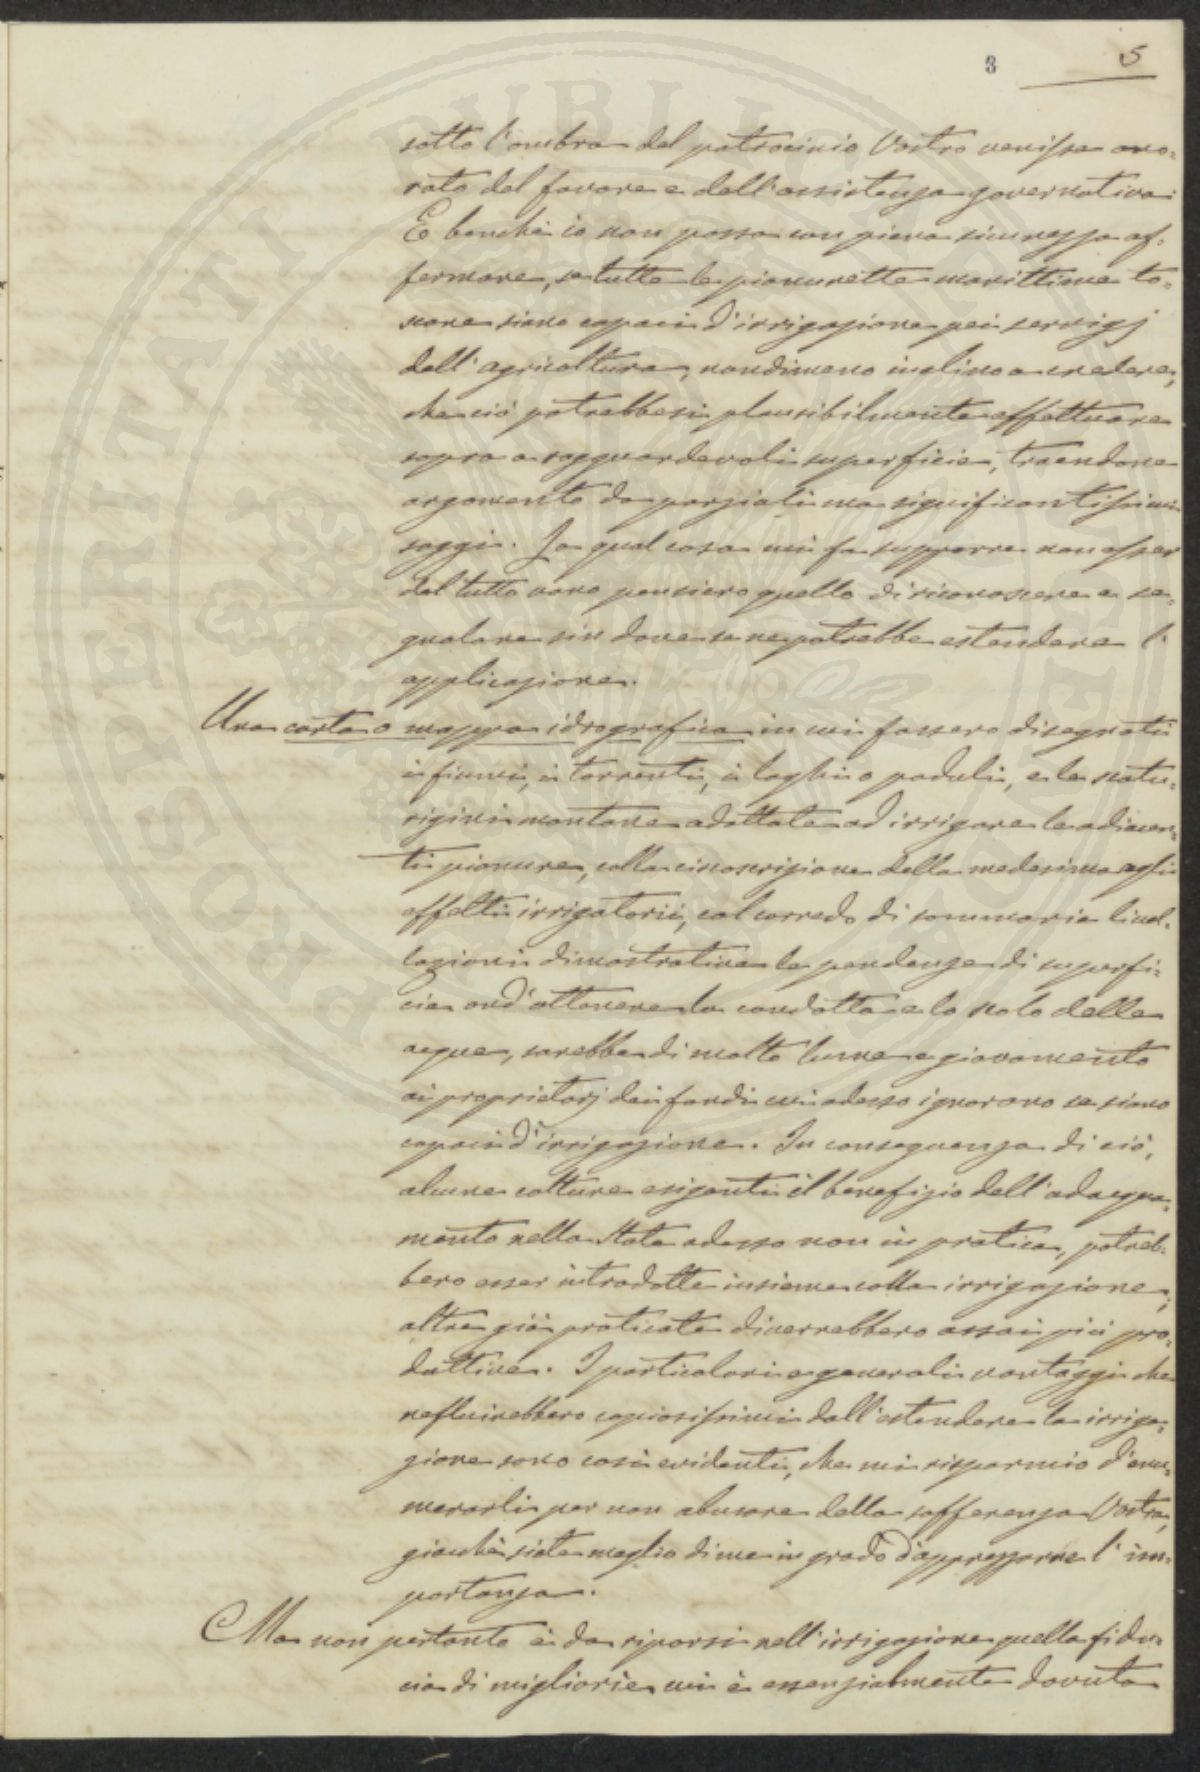 3 5
sotto l'ombra del patrocinio Vostro venisse ono-
rato del favore e dell'assistenza governativa.
E benchè io non possa con piena sicurezza af-
fermare, se tutte le pianurette marittime to-
scane siano capaci d'irrigazione pei servigj
dell'agricoltura, nondimeno inclino a credere,
che ciò potrebbesi plausibilmente effettuare
sopra a ragguardevoli superficie, traendone
argomento da parziali ma significantissimi
saggi. La qual cosa mi fa supporre non esser
del tutto vano pensiero quello di riconoscere e se-
gnalare sin dove se ne potrebbe estendere l'
applicazione.
Una carta o mappa idrografica in cui fossero disegnati
i fiumi, i torrenti, i laghi o paduli, e le scatu-
rigini montane adattate ad irrigare le adiacen-
ti pianure, colla circoscrizione della medesima agli
effetti irrigatorii, col corredo di sommarie livel-
lazioni dimostrative le pendenze di superfi-
cie ond'ottenere la condotta e lo scolo delle
acque, sarebbe di molto lume e giovamento
ai proprietarj dei fondi cui adesso ignorano se siano
capaci d'irrigazione. In conseguenza di ciò,
alcune colture esigenti il benefizio dell'adacqua-
mento nella state adesso non in pratica, potreb-
bero esser introdotte insieme colla irrigazione;
altre già praticate diverrebbero assai più pro-
duttive. I particolari e generali vantaggi che
refluirebbero copiosissimi dall'estendere la irriga-
zione sono così evidenti, che mi risparmio d'enu-
merarli per non abusare della sofferenza Vostra,
giacchè siete meglio di me in grado d'apprezzarne l'im-
portanza.
Ma non pertanto è da riporsi nell'irrigazione quella fidu-
cia di migliorie cui è essenzialmente dovuta
PROSPERITATI PUBLICAE